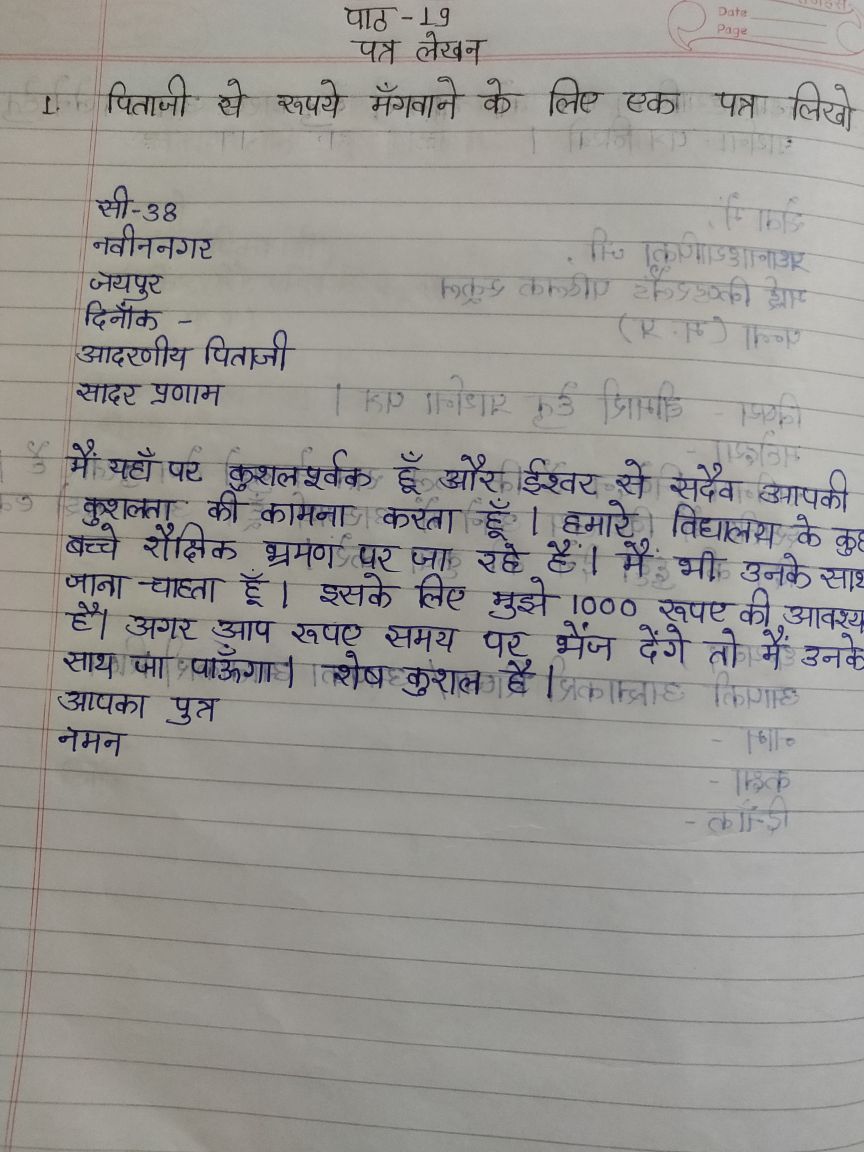 Date
Page
पाठ -19
पत्र लेखन
1. पिताजी से रूपये मँगवाने के लिए एक पत्र लिखो
सी-38
नवीननगर
जयपुर
दिनाँक -
आदरणीय पिताजी
सादर प्रणाम
मैं यहाँ पर कुशलपूर्वक हूँ और ईश्वर से सदैव आपकी
कुशलता की कामना करता हूँ। हमारे विद्यालय के कुछ
बच्चे शैक्षिक भ्रमण पर जा रहे हैं। मैं भी उनके साथ
जाना चाहता हूँ। इसके लिए मुझे 1000 रूपए की आवश्य
है। अगर आप रूपए समय पर भेंज देंगे तो मैं उनके
साथ जा पाऊँगा। शेष कुशल है।
आपका पुत्र
नमन